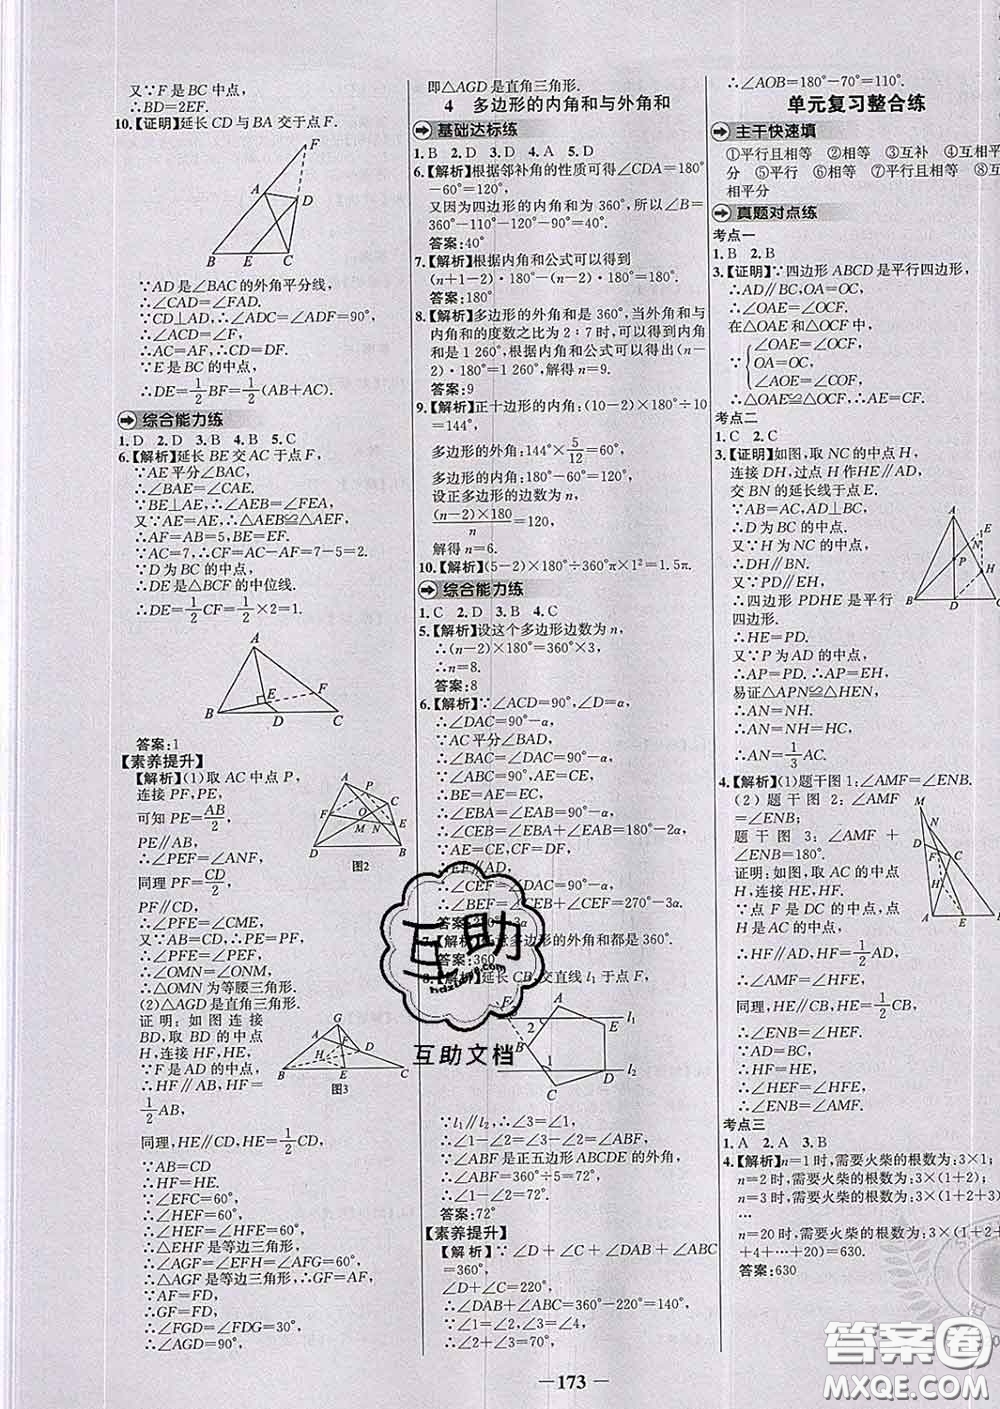 又∵F是BC中点,
∴BD=2EF.
10.【证明】延长CD与BA交于点F.
F
A
D
B
E
C
∵AD是∠BAC的外角平分线,
∴∠CAD=∠FAD.
∵CD⊥AD,∴∠ADC=∠FDA=90°,
∴∠ACD=∠F,
∴AC=AF,∴CD=DF.
∵E是BC的中点,
∴DE=1/2BF=1/2(AB+AC).
综合能力练
1.D 2.D 3.B 4.B 5.C
6.【解析】延长BE交AC于点F,
∵AE平分∠BAC,
∴∠BAE=∠CAE.
∵BE⊥AE,∴∠AEB=∠FEA,
又∵AE=AE,∴△AEB≌△AEF,
∴AF=AB=5,BE=EF.
∵AC=7,∴CF=AC-AF=7-5=2.
∵D为BC中点,
∴DE是△BCF的中位线.
∴DE=1/2CF=1/2×2=1.
A
E
F
B
D
C
答案:1
【素养提升】
【解析】(1)取AC中点P,
连接PF,PE,
可知PE=AB/2,
PE∥AB,
∴∠PEF=∠ANF,
同理PF=CD/2,
PF∥CD,
∴∠PFE=∠CME,
又∵AB=CD,∴PE=PF,
∴∠PFE=∠PEF,
∴∠OMN=∠ONM,
∴△OMN为等腰三角形.
(2)△AGD是直角三角形.
证明:如图连接
BD,取BD的中点
H,连接HF,HE,
∵F是AD的中点,
∴HF∥AB,HF=
1/2AB,
同理,HE∥CD,HE=1/2CD,
∵AB=CD
∴HF=HE.
∵∠EFC=60°,
∴∠HEF=60°,
∴∠HEF=∠HFE=60°,
∴△EHF是等边三角形,
∴∠3=∠EFC=∠AFG=60°,
∴△AGF是等边三角形.
∵AF=FD,
∴GF=FD,
∴∠FGD=∠FDG=30°,
∴∠AGD=90°,
A
P
C
F
O
E
M
N
D
B
图2
G
A
F
D
H
B
E
C
图3
即△AGD是直角三角形.
4 多边形的内角和与外角和
基础达标练
1.B 2.D 3.D 4.A 5.D
6.【解析】根据邻补角的性质可得∠CDA=180°
-60°=120°,
又因为四边形的内角和为360°,所以∠B=
360°-110°-120°-90°=40°.
答案:40°
7.【解析】根据内角和公式可以得到
(n+1-2)·180°-(n-2)·180°=180°.
答案:180°
8.【解析】多边形的外角和是360°,当外角和与
内角和的度数之比为2∶7时,可以得到内角
和是1 260°,根据内角和公式可以得出(n-
2)·180°=1 260°,解得n=9.
答案:9
9.【解析】正十边形的内角:(10-2)×180°÷10
=144°,
多边形的外角:144°×5/12=60°,
多边形的内角:180°-60°=120°,
设正多边形的边数为n,
(n-2)×180/n=120,
解得n=6.
10.【解析】(5-2)×180°÷360°π×1²=1.5π.
综合能力练
1.C 2.D 3.B 4.C
5.【解析】设这个多边形边数为n,
∴(n-2)×180°=360°×3,
∴n=8.
答案:8
6.【解析】∵∠ACD=90°,∠D=α,
∴∠DAC=90°-α,
∵AC平分∠BAD,
∴∠BAC=∠DAC=90°-α,
∵∠ABC=90°,E为AC的中点,
∴BE=AE=EC,
∴∠EBA=∠BAC=90°-α,
∴∠CEB=∠EBA+∠EAB=180°-2α,
∵AE=CE,CF=DF,
∴EF∥AD,
∴∠CEF=∠DAC=90°-α,
∴∠BEF=∠CEB+∠CEF=270°-3α.
7.【解析】任意多边形的外角和都是360°.
答案:360
8.【解析】延长CB,交直线l₁于点F,
F
A
B
E
l₁
2
1
C
D
l₂
∵l₁∥l₂,∴∠3=∠1,
∴∠1-∠2=∠3-∠2=∠ABF,
∵∠ABF是正五边形ABCDE的外角,
∴∠1-∠2=72°.
答案:72°
【素养提升】
【解析】∵∠D+∠C+∠DAB+∠ABC
=360°,
∠D+∠C=220°,
∴∠DAB+∠ABC=360°-220°=140°,
∵∠1=∠2,∠3=∠4,
∴∠2+∠3=70°,
∴∠AOB=180°-70°=110°.
单元复习整合练
主干快速填
①平行且相等 ②相等 ③互补 ④平行
分 ⑤平行 ⑥相等 ⑦平行且相等 ⑧
相平分
真题对点练
考点一
1.B 2.B
3.【证明】∵四边形ABCD是平行四边形,
∴AD∥BC,OA=OC,
∴∠OAE=∠OCF,
在△OAE和△OCF中,
∵
∠OAE=∠OCF,
OA=OC,
∠AOE=∠COF,
∴△OAE≌△OCF,∴AE=CF.
考点二
1.C 2.C
3.【证明】如图,取NC的中点H,
连接DH,过点H作HE∥AD,
交BN的延长线于点E.
∵AB=AC,AD⊥BC,
∴D为BC的中点,
又∵H为NC的中点,
∴DH∥BN,
又∵PD∥EH,
∴四边形PDHE是平行
四边形.
∴HE=PD.
又∵P为AD的中点,
∴AP=PD.∴AP=EH,
易证△APN≌△HEN,
∴AN=NH.
∴AN=NH=HC,
∴AN=1/3AC.
A
E
N
P
H
B
D
C
4.【解析】(1)题干图1:∠AMF=∠ENB.
(2)题干图2:∠AMF
=∠ENB;
题干图3:∠AMF+
∠ENB=180°.
证明:如图,取AC的中点
H,连接HE,HF.
∵点F是DC的中点,点
H是AC的中点,
∴HF∥AD,HF=1/2AD,
∴∠AMF=∠HFE,
同理,HE∥CB,HE=1/2CB,
∴∠ENB=∠HEF.
∵AD=BC,
∴HF=HE,
∴∠HEF=∠HFE,
∴∠ENB=∠AMF.
M
N
D
F
C
H
A
E
B
考点三
1.A 2.A 3.B
4.【解析】n=1时,需要火柴的根数为:3×1;
n=2时,需要火柴的根数为:3×(1+2);
n=3时,需要火柴的根数为:3×(1+2+3)
…
n=20时,需要火柴的根数为:3×(1+2+
+4+…+20)=630.
答案:630
互助
hdzuoye.com
互助文档
答案圈
MXQE.COM
— 173 —